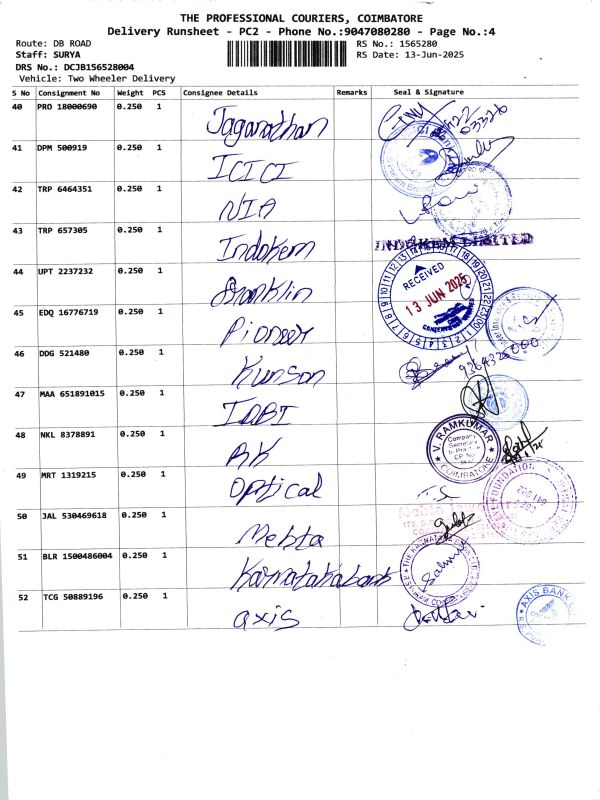 THE PROFESSIONAL COURIERS, COIMBATORE
Delivery Runsheet - PC2 - Phone No.:9047080280 - Page No.:4
Route: DB ROAD RS No.: 1565280
Staff: SURYA RS Date: 13-Jun-2025
DRS No.: DCJB156528004
Vehicle: Two Wheeler Delivery
S No Consignment No Weight PCS Consignee Details Remarks Seal & Signature
40 PRO 18000690 0.250 1 Jaganathan
41 DPM 500919 0.250 1 ICICI
42 TRP 6464351 0.250 1 NIA
43 TRP 657305 0.250 1 Indokem INDOKEM LIMITED
44 UPT 2237232 0.250 1 Franklin RECEIVED 13 JUN 2025
45 EDQ 16776719 0.250 1 Pioneer
46 DDG 521480 0.250 1 Kunson
47 MAA 651891015 0.250 1 IDBI
48 NKL 8378891 0.250 1 RK V. RAMKUMAR Company Secretary COIMBATORE
49 MRT 1319215 0.250 1 Optical
50 JAL 530469618 0.250 1 Mehta
51 BLR 1500486004 0.250 1 Karnatakabank
52 TCG 50889196 0.250 1 axis AXIS BANK